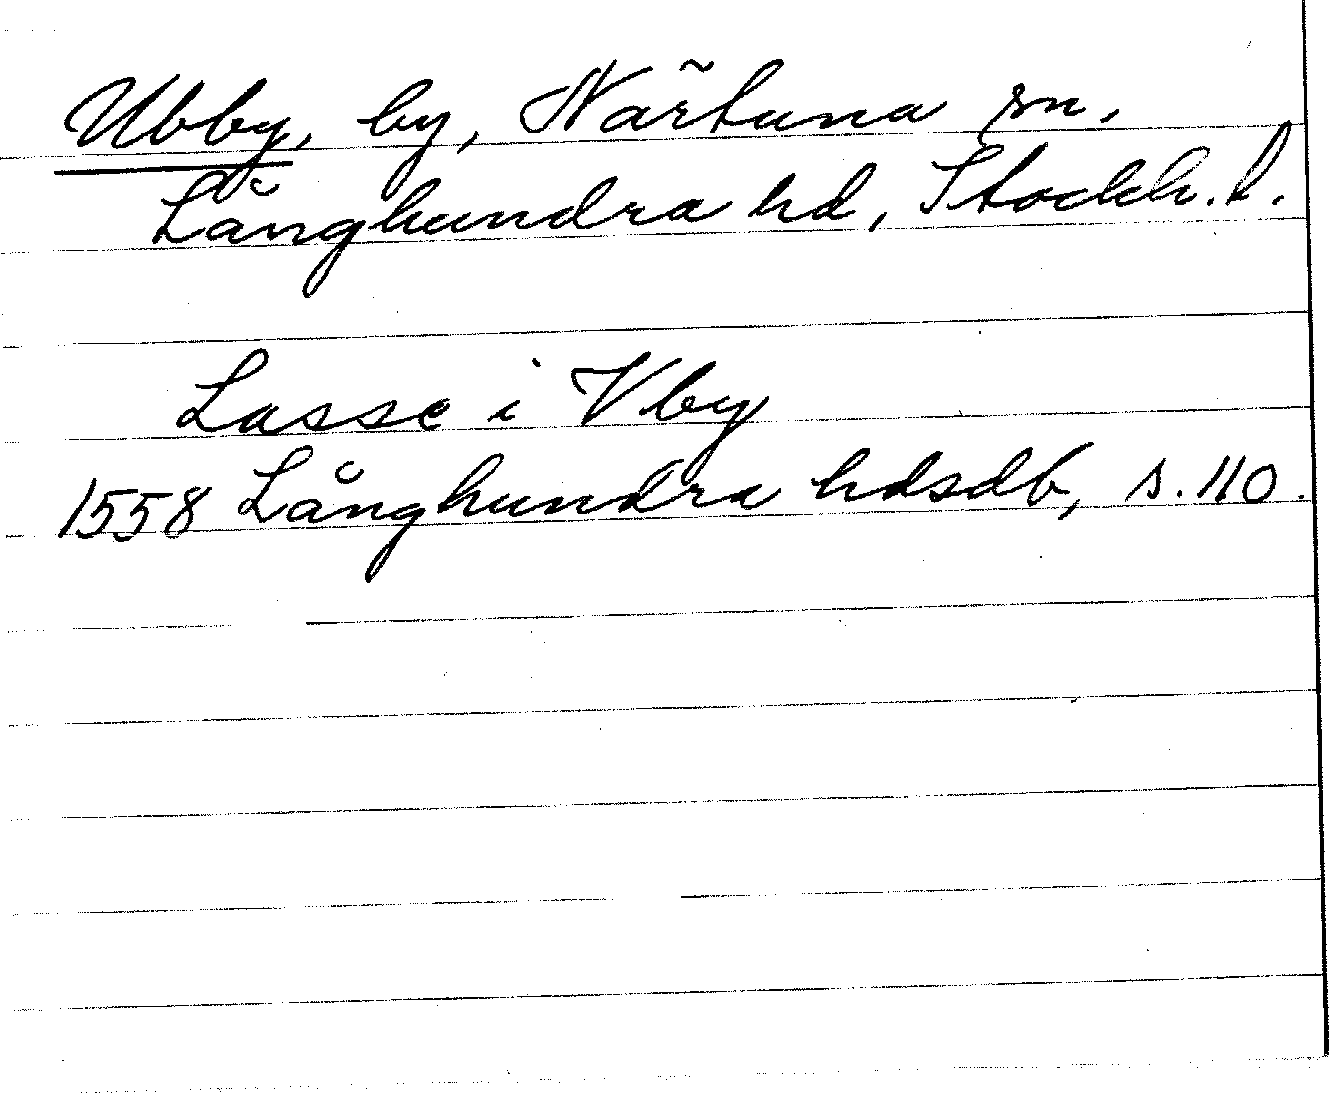 Ubby, by, Närtuna sn,
Långhundra hd, Stockh. l.
Lasse i Vby
1558 Långhundra hdsdb, s. 110.